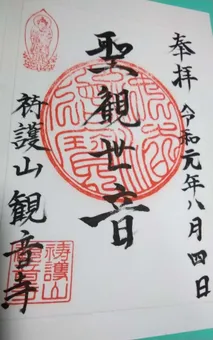 奉拝 令和元年八月四日
聖観世音
祷護山 観音寺